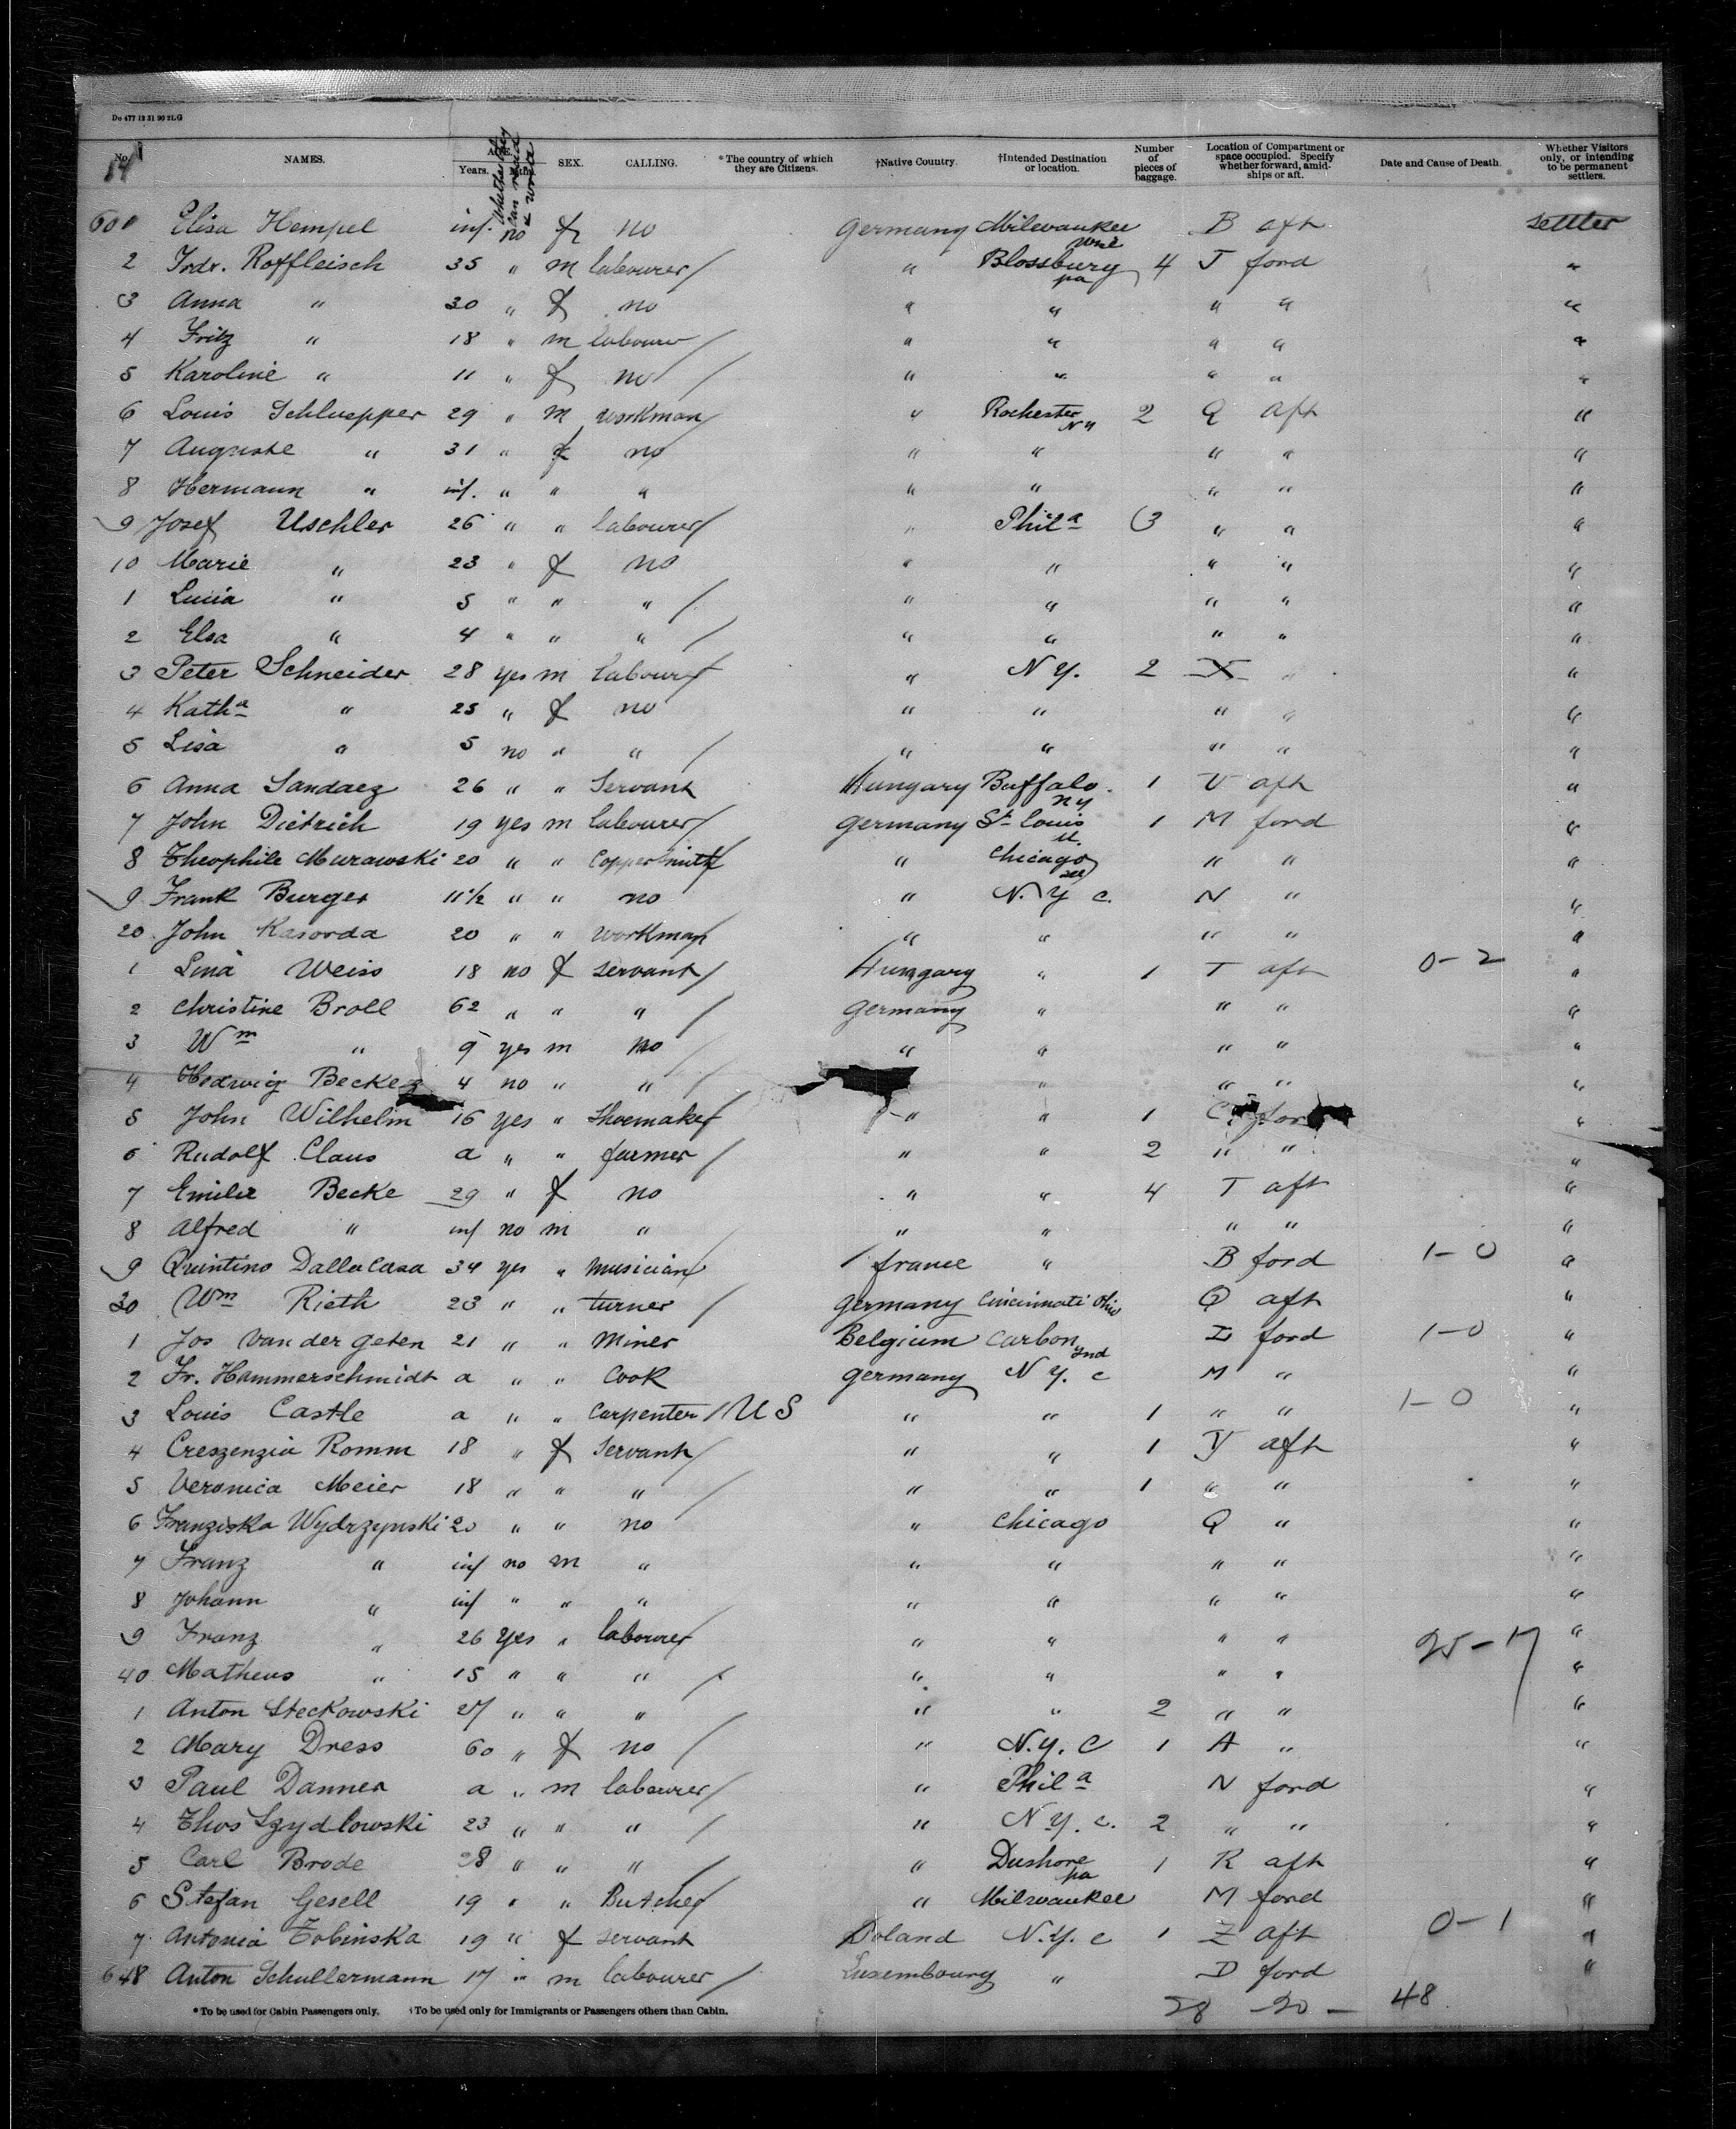 Do 477 12 31 90 2LG
No. NAMES. AGE. Years. Mths. Whether they can read & write SEX. CALLING. *The country of which they are Citizens. †Native Country. †Intended Destination or location. Number of pieces of baggage. Location of Compartment or space occupied. Specify whether forward, amidships or aft. Date and Cause of Death. Whether Visitors only, or intending to be permanent settlers.
14
601 Elisa Hempel inf. no f no Germany Milwaukee B aft settler
2 Frdr. Roffleisch 35 " m labourer / " Blossburg pa 4 J ford "
3 Anna " 30 " f no " " " " "
4 Fritz " 18 " m labourer / " " " " "
5 Karoline " 11 " f no / " " " " "
6 Louis Schluepper 29 " m workman / " Rochester NY 2 Q aft "
7 Auguste " 31 " f no " " " " "
8 Hermann " inf. " " " " " " " "
9 Josef Uschler 26 " " labourer / " Phila 3 " " "
10 Marie " 23 " f no " " " " "
1 Lucia " 5 " " " / " " " " "
2 Elsa " 4 " " " / " " " " "
3 Peter Schneider 28 yes m labourer / " N Y. 2 X " "
4 Katha " 25 " f no " " " " "
5 Lisa " 5 no " " / " " " " "
6 Anna Sandaez 26 " " Servant Hungary Buffalo. ny 1 V aft "
7 John Dietrich 19 yes m labourer / Germany St. Louis 1 M ford "
8 Theophile Murawski 20 " " Coppersmith / " Chicago " " "
9 Frank Burger 11 1/2 " " no " N. Y c. N " "
20 John Kasorda 20 " " workman / " " " " "
1 Lena Weiss 18 no f servant / Hungary " 1 T aft 0-2 "
2 Christine Broll 62 " " " / Germany " " " "
3 Wm " 9 yes m no / " " " " "
4 Hedwig Becke 4 no " " / " " " "
5 John Wilhelm 16 yes " Shoemaker / " " 1 C ford "
6 Rudolf Claus a " " farmer / " " 2 " " "
7 Emilie Becke 29 " f no " " 4 T aft "
8 Alfred " inf no m " / " " " " "
9 Quintino Dallacasa 34 yes " musician / / france " B ford 1-0 "
30 Wm Rieth 23 " " turner / Germany Cincinnati Ohio Q aft "
1 Jos van der geten 21 " " Miner Belgium Carbon Ind I ford 1-0 "
2 Fr. Hammerschmidt a " " Cook Germany N Y. c M " "
3 Louis Castle a " " Carpenter / U S " " 1 " " 1-0 "
4 Creszenzia Romm 18 " f Servant / " " 1 Y aft "
5 Veronica Meier 18 " " " / " " 1 " " "
6 Franziska Wydrzynski 20 " " no " Chicago Q " "
7 Franz " inf no m " " " " " "
8 Johann " inf " " " " " " " "
9 Franz " 26 yes " labourer / " " " " 25-17 "
40 Matheus " 15 " " " / " " " " "
1 Anton Steckowski 27 " " " " " 2 " " "
2 Mary Dress 60 " f no / " N.Y. C 1 A " "
3 Paul Danner a " m labourer / " Phila N ford "
4 Thos Szydlowski 23 " " " / " N Y. c. 2 " " "
5 Carl Brode 28 " " " / " Dushore pa 1 K aft "
6 Stefan Gesell 19 " " Butcher / " Milwaukee M ford "
7 Antonia Tobinska 19 " f servant Poland N.Y. c 1 Z aft 0-1 "
648 Anton Schullermann 17 " m labourer / Luxembourg " D ford "
28 - 20 - 48
*To be used for Cabin Passengers only. †To be used only for Immigrants or Passengers others than Cabin.